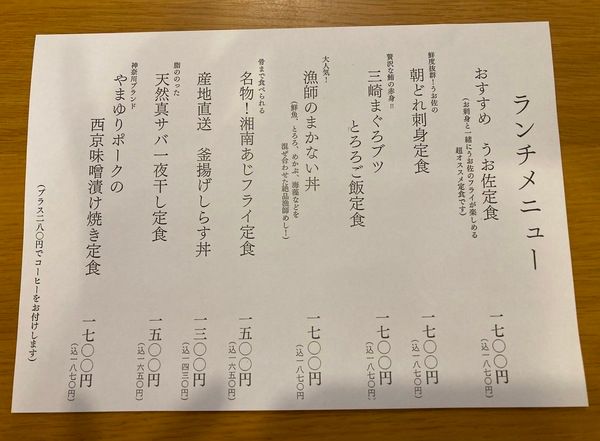 ランチメニュー
おすすめ　うお佐定食
(お刺身と一緒にうお佐のフライが楽しめる
超オススメ定食です)
一七〇〇円
(込一八七〇円)
鮮度抜群!うお佐の
朝どれ刺身定食
一七〇〇円
(込一八七〇円)
贅沢な鮪の赤身!!
三崎まぐろブツ
とろろご飯定食
一七〇〇円
(込一八七〇円)
大人気!
漁師のまかない丼
(鮮魚、とろろ、めかぶ、海藻などを
混ぜ合わせた絶品漁師めし!)
一七〇〇円
(込一八七〇円)
骨まで食べられる
名物!湘南あじフライ定食
一五〇〇円
(込一六五〇円)
産地直送　釜揚げしらす丼
一三〇〇円
(込一四三〇円)
脂ののった
天然真サバ一夜干し定食
一五〇〇円
(込一六五〇円)
神奈川ブランド
やまゆりポークの
西京味噌漬け焼き定食
一七〇〇円
(込一八七〇円)
(プラス二八〇円でコーヒーをお付けします)